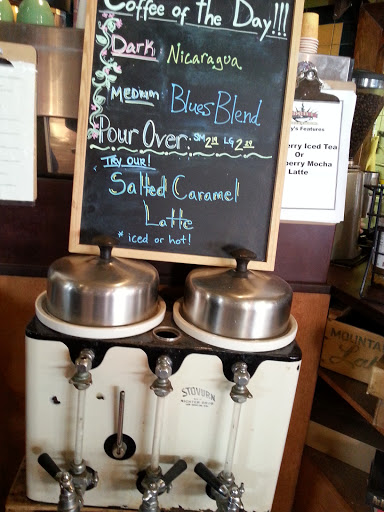 Coffee of The Day!!!
Dark
Nicaragua
Medium
Blues Blend
Pour Over: SM 2
LG 2
Try our!
Salted Caramel
Latte
* iced or hot!
Features
Iced Tea
Or
Mocha
Latte
STOVURN
MOUNTAIN